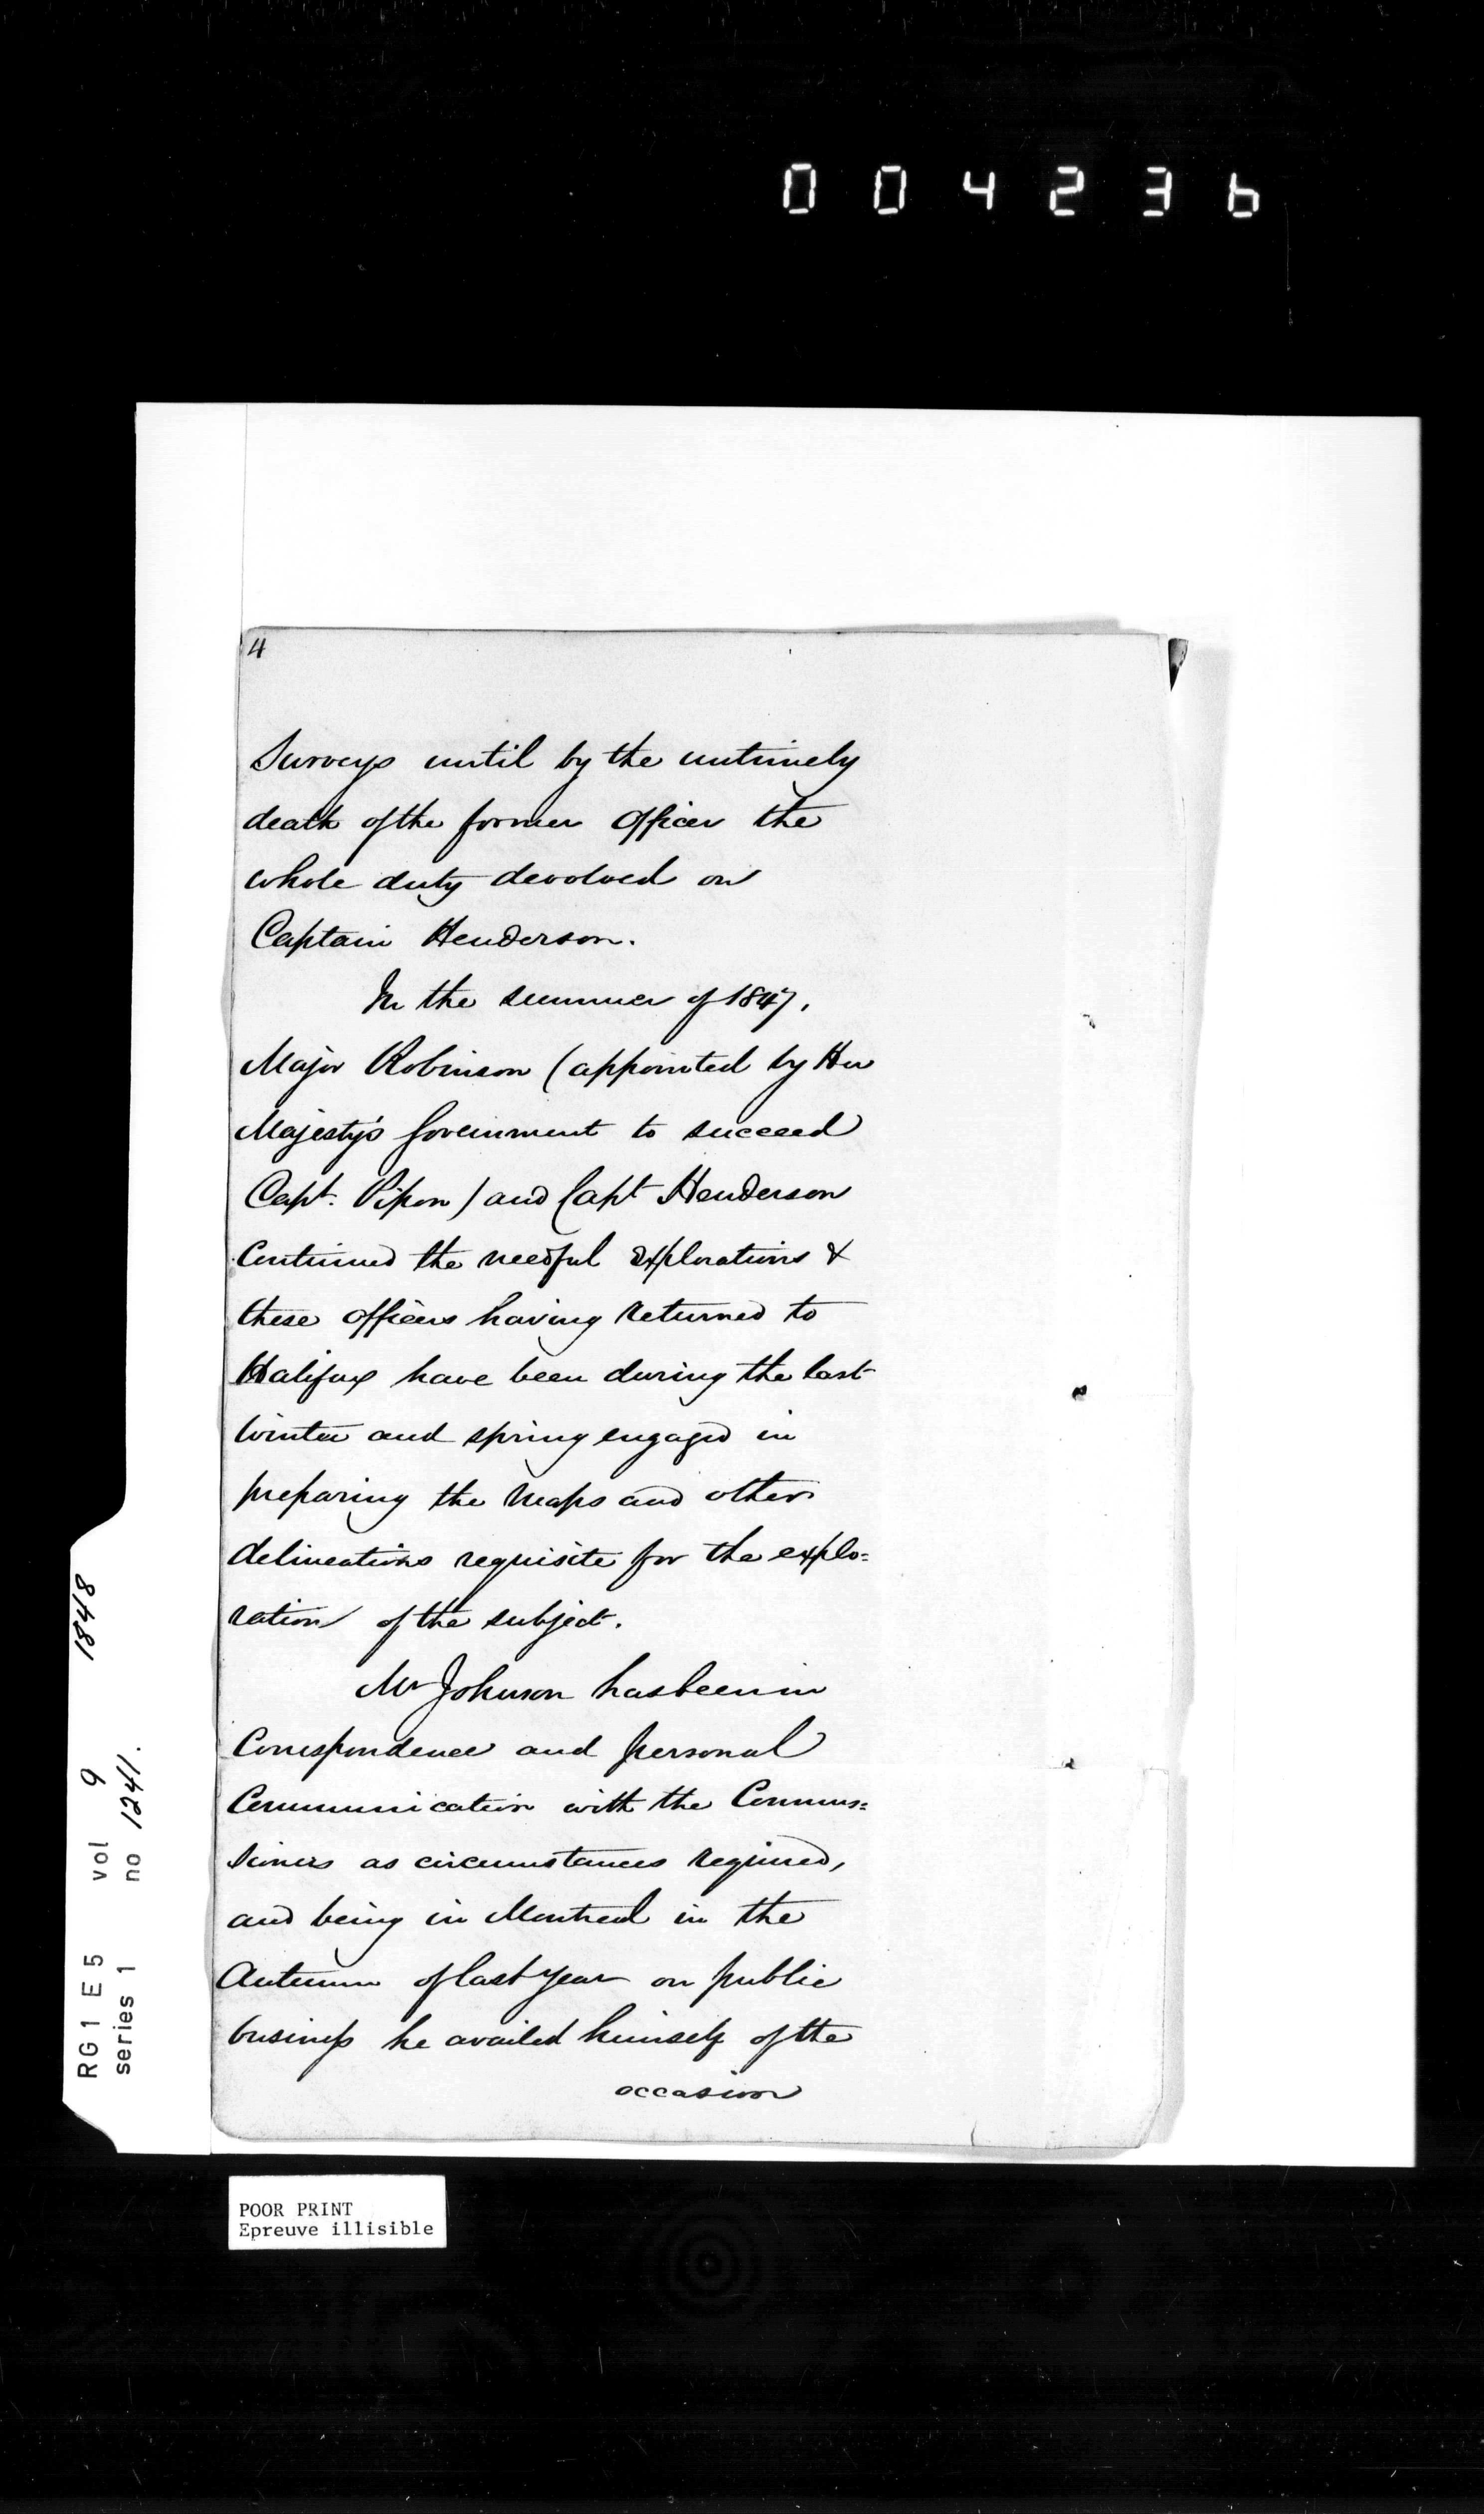 004236
4
Surveys until by the untimely
death of the former Officer the
whole duty devolved on
Captain Henderson.
In the summer of 1847,
Major Robinson (appointed by Her
Majesty's Government to succeed
Capt. Pipon) and Capt Henderson
Continued the needful explorations &
these officers having returned to
Halifax have been during the last
Winter and spring engaged in
preparing the Maps and other
delineations requisite for the explo=
ration of the subject.
Mr Johnson has been in
Correspondence and personal
Communication with the Commis=
sioners as circumstances required,
and being in Montreal in the
Autumn of last year on public
business he availed himself of the
occasion
RG 1 E 5 vol 9 1848
series 1 no 1241.
POOR PRINT
Epreuve illisible